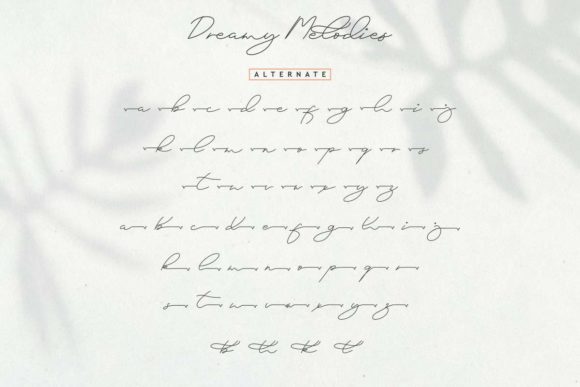 Dreamy Melodies
ALTERNATE
a b c d e f g h i j
k l m n o p q r s
t u v w x y z
a b c d e f g h i j
k l m n o p q r
s t u v w x y z
b h k t